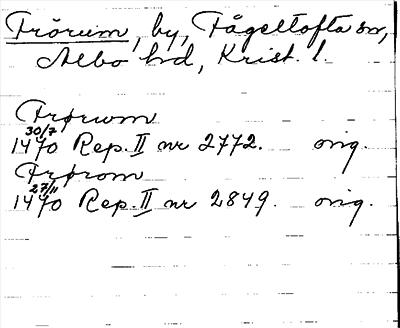 Frörum, by, Fågeltofta sn,
Albo hd, Krist. l.
Frørwm
30/7
1470 Rep. II nr 2772. orig.
Frørom
27/11
1470 Rep. II nr 2849. orig.